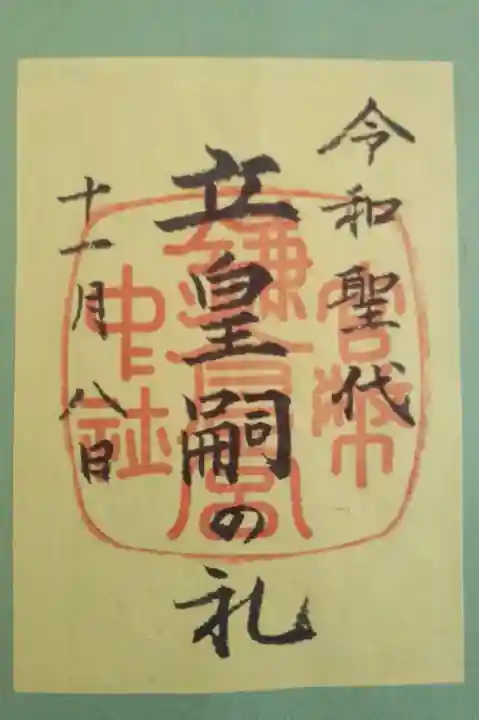 令和聖代
立皇嗣の礼
十一月八日
官幣
鎌倉宮
中社